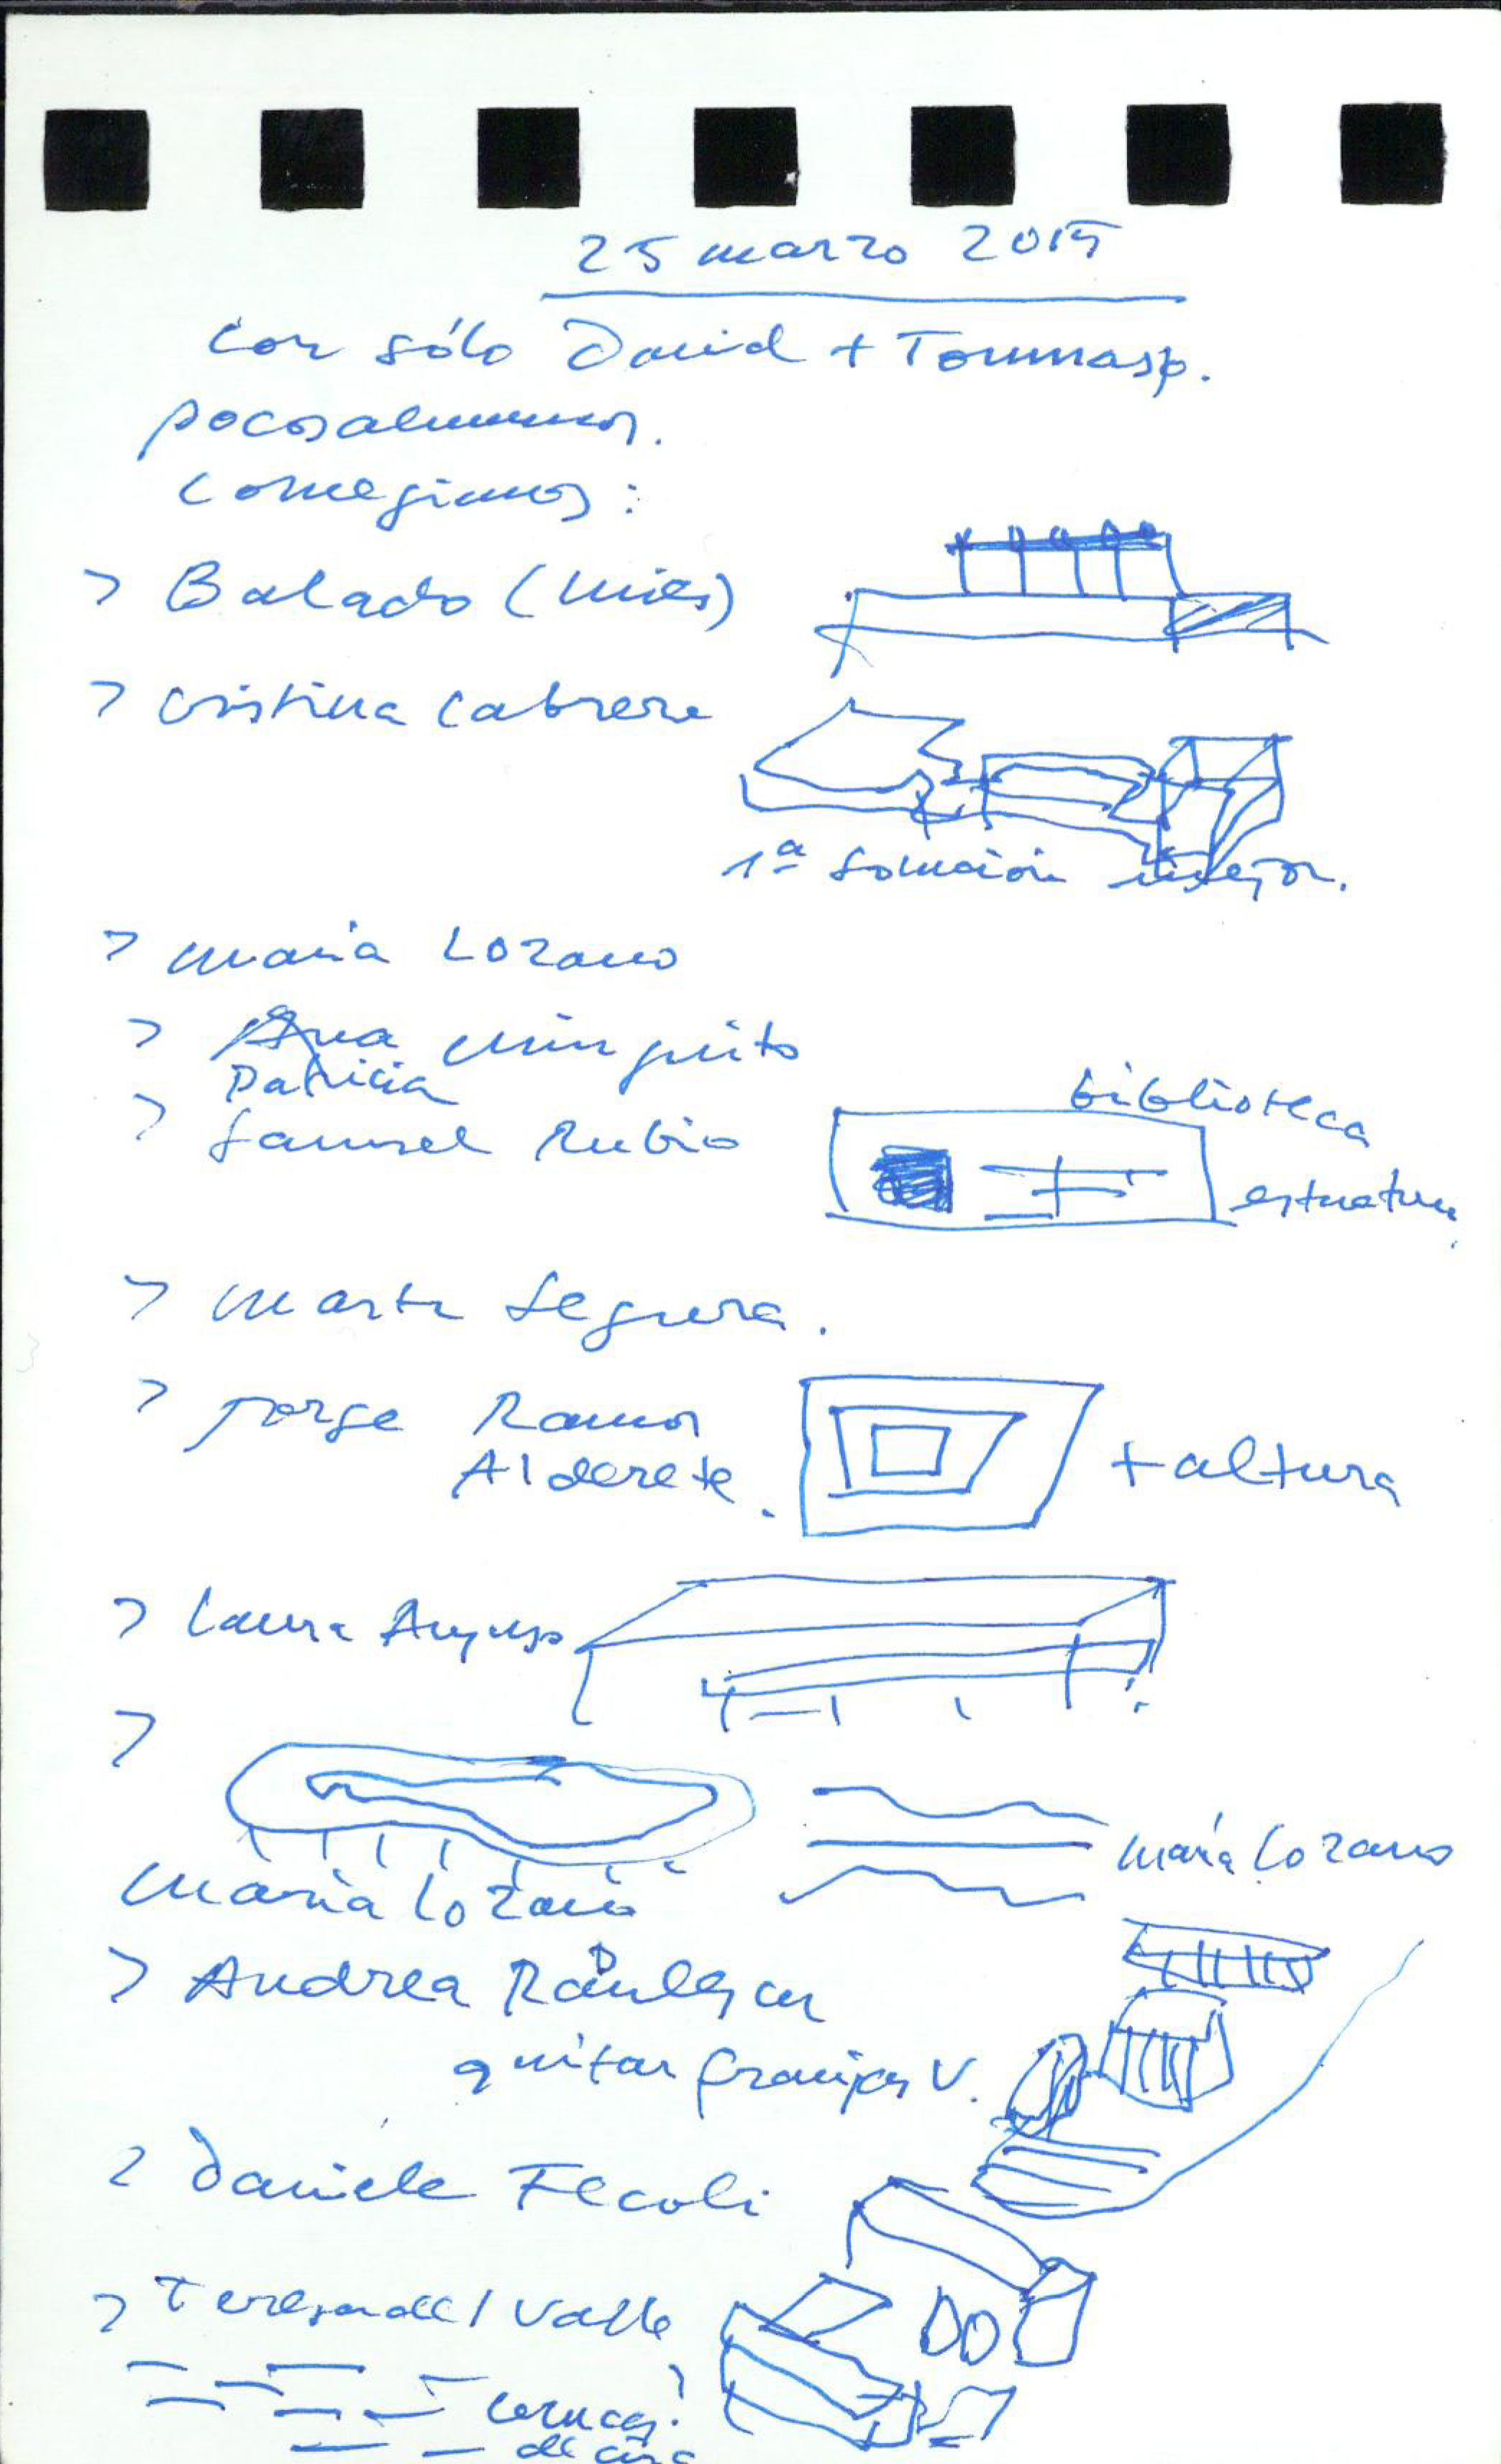 25 marzo 2015
con sólo David + Tommaso.
pocos alumnos.
Corregimos:
> Balado (Mies)
> Cristina Cabrera
1ª solución mejor.
> María Lozano
> Ana Minguito
Patricia
> Samuel Rubio
biblioteca
estructura
> Marta Segura.
> Jorge Ramos
Alderete.
+ altura
> Laura
>
María Lozano
María Lozano
> Andrea
quitar franjas V.
> Daniele Fecoli
> Teresa del Valle